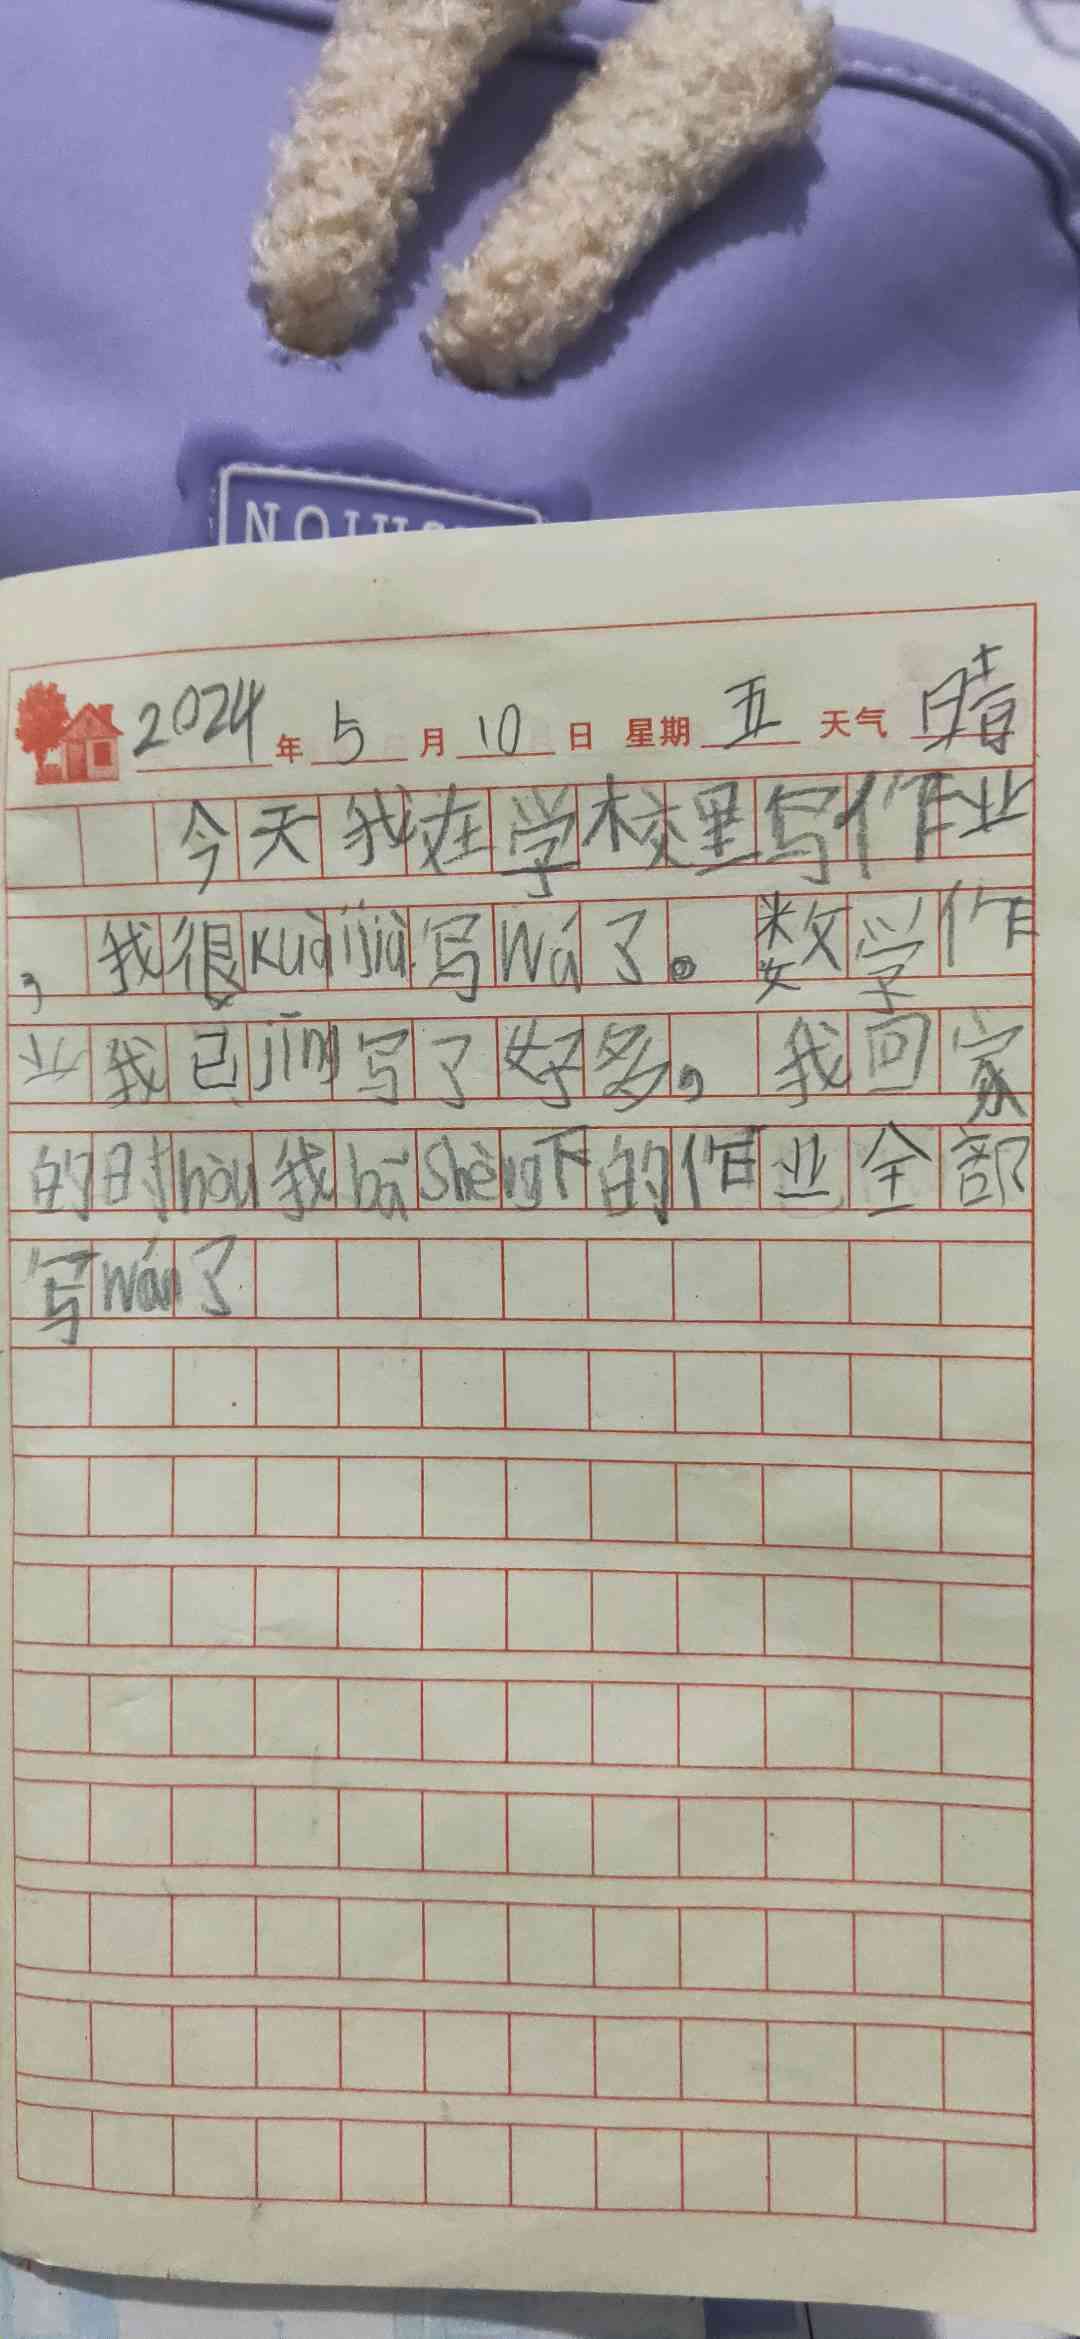 2024年5月10日 星期五 天气晴
今天我在学校里写作业
，我很kuàijiù写wá了。数学作
业我已jīng写了好多，我回家
的时hòu我bǎshèng下的作业全部
写wán了